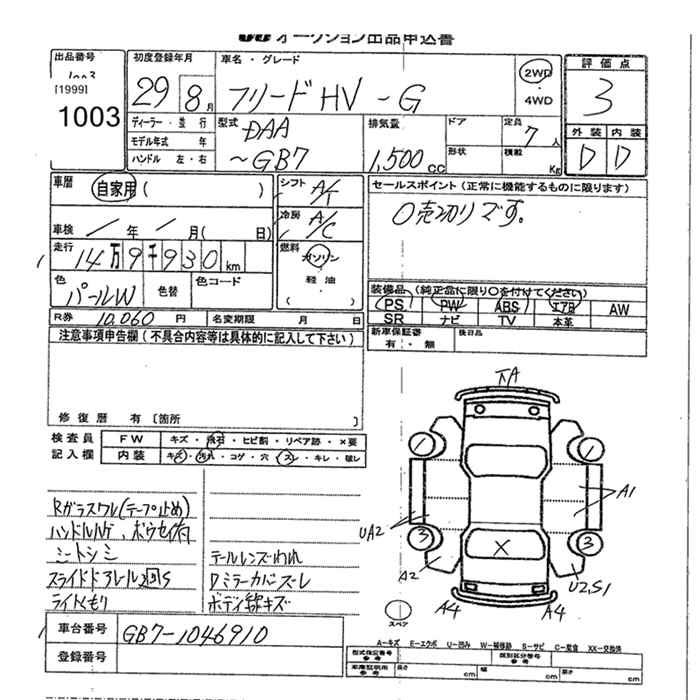 オークション出品申込書
出品番号
[1999]
1003
初度登録年月
29 8月
車名・グレード
フリードHV -G
2WD
4WD
評価点
3
外装 内装
D D
ディーラー・並行
モデル年式 年
ハンドル 左・右
型式
DAA
~GB7
排気量
1,500cc
ドア
形状
定員
7人
積載
Kg
車歴
自家用( )
車検 / 年 / 月( 日)
走行
14万9千930km
色
パールW
色替
色コード
シフト A/T
冷房 A/C
燃料
ガソリン
軽油
( )
セールスポイント(正常に機能するものに限ります)
○売切りです。
装備品(純正品に限り○を付けてください)
PS PW ABS エアB AW
SR ナビ TV 本革
新車保証書
有・無
後日品
R券 10,060円 名変期限 月 日
注意事項申告欄(不具合内容等は具体的に記入して下さい)
修復歴 有〔箇所
検査員 FW キズ・飛石・ヒビ割・リペア跡・×要
記入欄 内装 キズ・汚れ・コゲ・穴・スレ・キレ・破レ
Rガラスワレ(テープ止め)
シートシミ
テールレンズわれ
スライドドアレール
ライトくもり
車台番号 GB7-1046910
登録番号
A
1
1
A1
UA2
3
3
X
A2
U2S1
A4
A4
スペア
A-キズ E-エクボ U-凹み W-補修跡 S-サビ C-腐食 XX-交換済
型式指定番号
参考
類別区分番号
参考
車庫証明用
参考
長さ cm 幅 cm 高さ cm